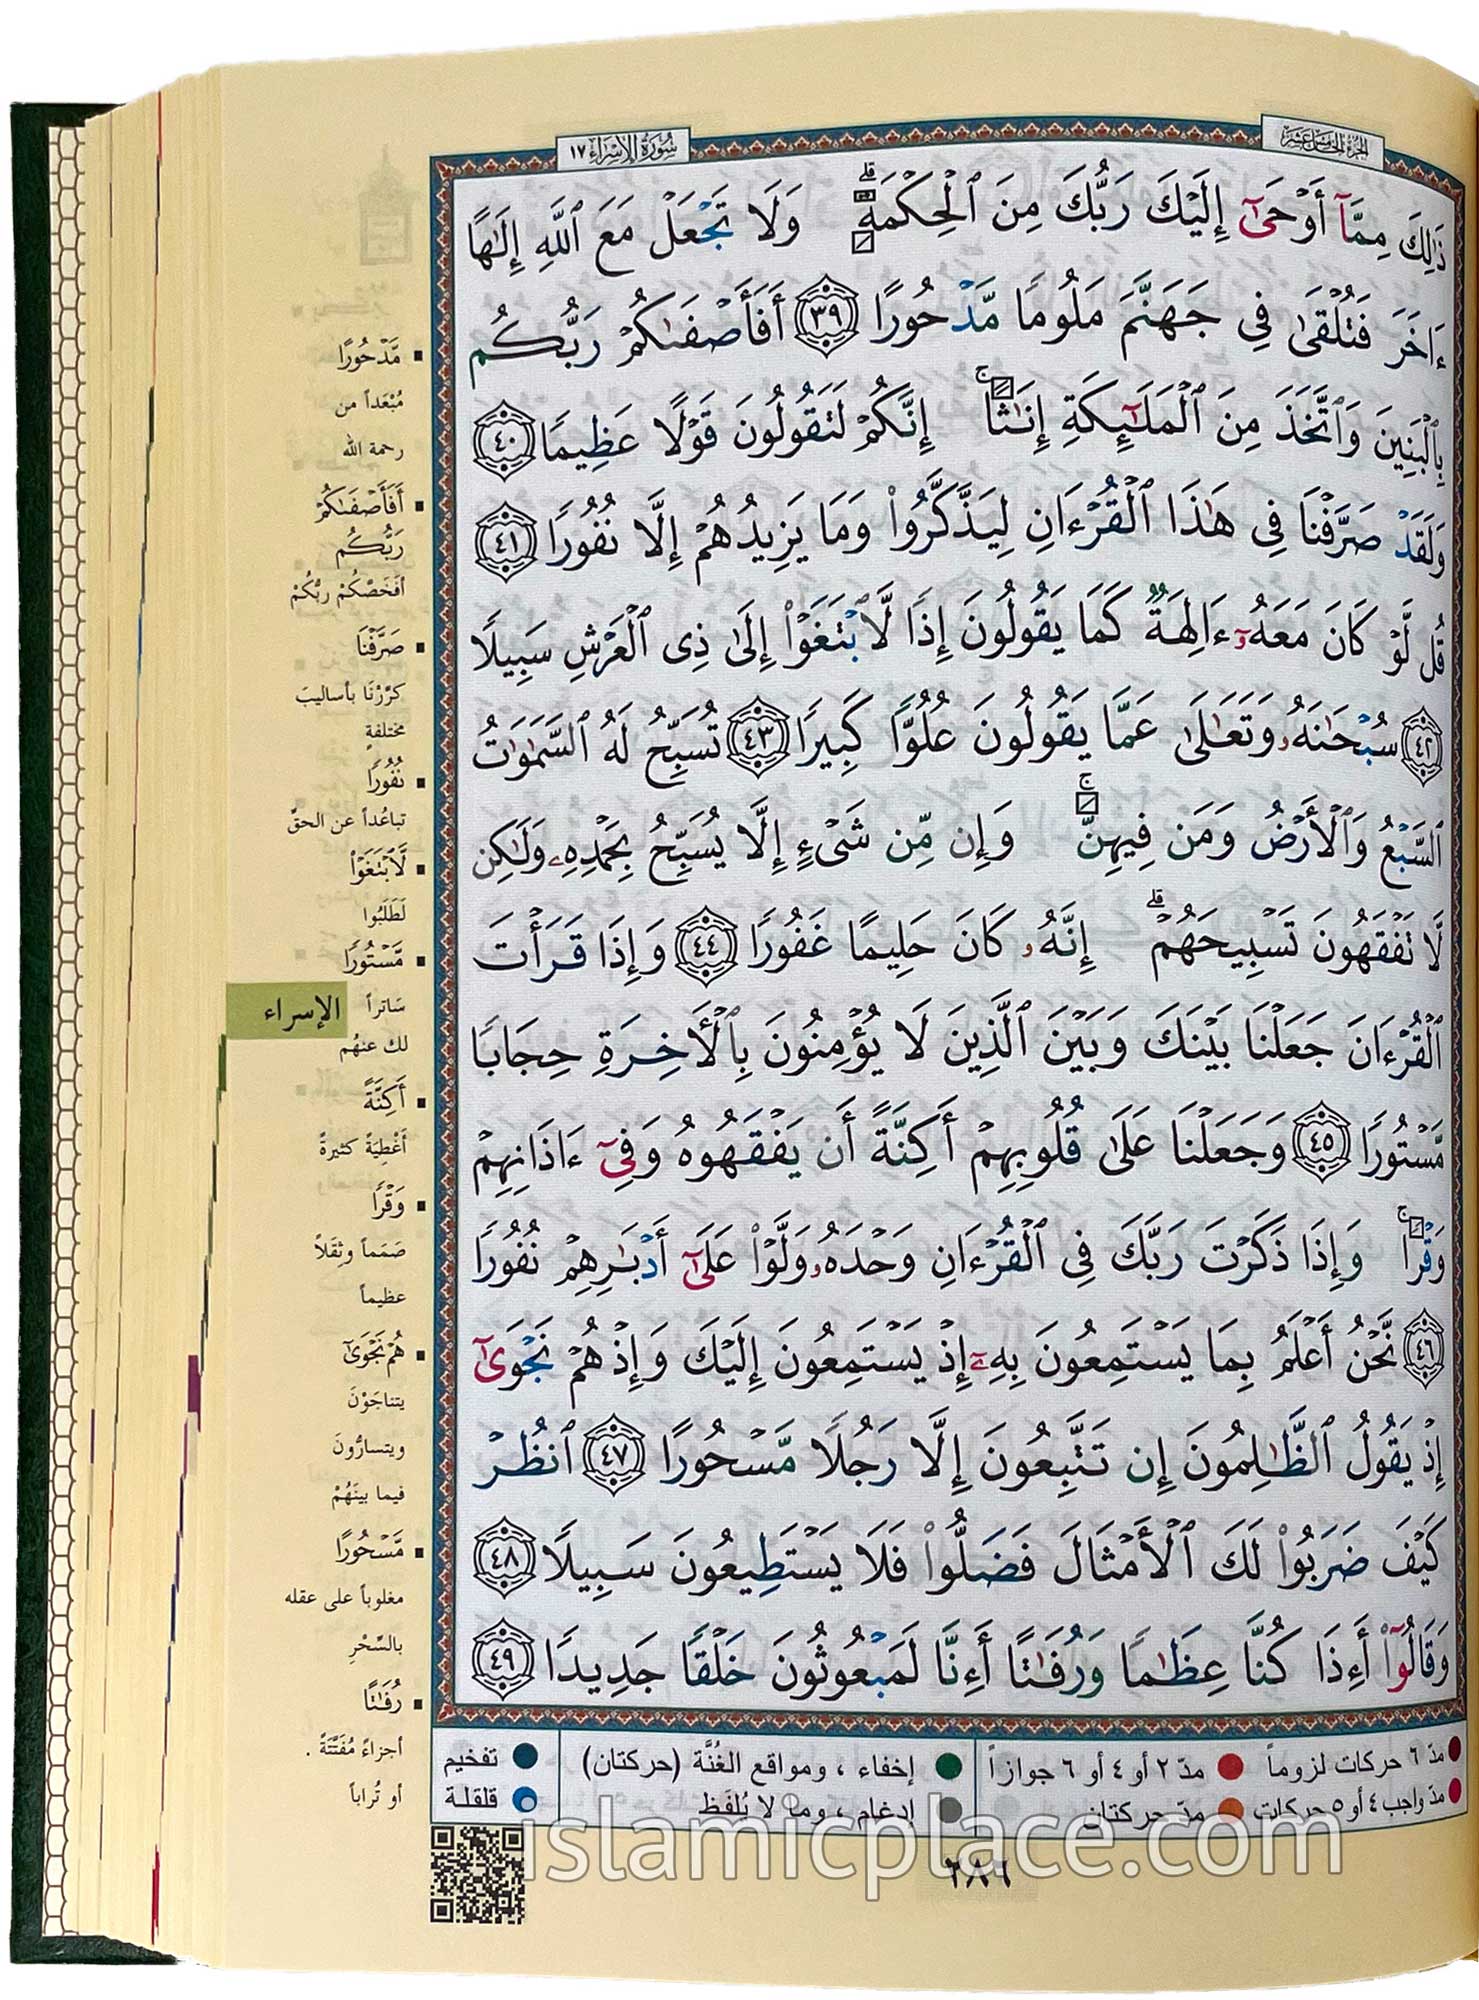 الجزء الخامس عشر
سُورَةُ الإِسْرَاءِ ١٧
ذَٰلِكَ مِمَّآ أَوْحَىٰٓ إِلَيْكَ رَبُّكَ مِنَ ٱلْحِكْمَةِ ۗ وَلَا تَجْعَلْ مَعَ ٱللَّهِ إِلَٰهًا
ءَاخَرَ فَتُلْقَىٰ فِى جَهَنَّمَ مَلُومًا مَّدْحُورًا ٣٩ أَفَأَصْفَىٰكُمْ رَبُّكُم
بِٱلْبَنِينَ وَٱتَّخَذَ مِنَ ٱلْمَلَٰٓئِكَةِ إِنَٰثًا ۚ إِنَّكُمْ لَتَقُولُونَ قَوْلًا عَظِيمًا ٤٠
وَلَقَدْ صَرَّفْنَا فِى هَٰذَا ٱلْقُرْءَانِ لِيَذَّكَّرُوا۟ وَمَا يَزِيدُهُمْ إِلَّا نُفُورًا ٤١
قُل لَّوْ كَانَ مَعَهُۥٓ ءَالِهَةٌ كَمَا يَقُولُونَ إِذًا لَّٱبْتَغَوْا۟ إِلَىٰ ذِى ٱلْعَرْشِ سَبِيلًا
٤٢ سُبْحَٰنَهُۥ وَتَعَٰلَىٰ عَمَّا يَقُولُونَ عُلُوًّا كَبِيرًا ٤٣ تُسَبِّحُ لَهُ ٱلسَّمَٰوَٰتُ
ٱلسَّبْعُ وَٱلْأَرْضُ وَمَن فِيهِنَّ ۚ وَإِن مِّن شَىْءٍ إِلَّا يُسَبِّحُ بِحَمْدِهِۦ وَلَٰكِن
لَّا تَفْقَهُونَ تَسْبِيحَهُمْ ۗ إِنَّهُۥ كَانَ حَلِيمًا غَفُورًا ٤٤ وَإِذَا قَرَأْتَ
ٱلْقُرْءَانَ جَعَلْنَا بَيْنَكَ وَبَيْنَ ٱلَّذِينَ لَا يُؤْمِنُونَ بِٱلْأَخِرَةِ حِجَابًا
مَّسْتُورًا ٤٥ وَجَعَلْنَا عَلَىٰ قُلُوبِهِمْ أَكِنَّةً أَن يَفْقَهُوهُ وَفِىٓ ءَاذَانِهِمْ
وَقْرًا ۚ وَإِذَا ذَكَرْتَ رَبَّكَ فِى ٱلْقُرْءَانِ وَحْدَهُۥ وَلَّوْا۟ عَلَىٰٓ أَدْبَٰرِهِمْ نُفُورًا
٤٦ نَّحْنُ أَعْلَمُ بِمَا يَسْتَمِعُونَ بِهِۦٓ إِذْ يَسْتَمِعُونَ إِلَيْكَ وَإِذْ هُمْ نَجْوَىٰٓ
إِذْ يَقُولُ ٱلظَّٰلِمُونَ إِن تَتَّبِعُونَ إِلَّا رَجُلًا مَّسْحُورًا ٤٧ ٱنظُرْ
كَيْفَ ضَرَبُوا۟ لَكَ ٱلْأَمْثَالَ فَضَلُّوا۟ فَلَا يَسْتَطِيعُونَ سَبِيلًا ٤٨
وَقَالُوٓا۟ أَءِذَا كُنَّا عِظَٰمًا وَرُفَٰتًا أَءِنَّا لَمَبْعُوثُونَ خَلْقًا جَدِيدًا ٤٩
مَّدْحُورًا
مُبْعَداً من
رحمة الله
أَفَأَصْفَىٰكُمْ
رَبُّكُم
أفَخَصَّكُمْ ربُّكُمْ
صَرَّفْنَا
كرَّرْنَا بأساليبَ
مختلفةٍ
نُفُورًا
تباعُداً عن الحقّ
لَّٱبْتَغَوْا۟
لَطَلَبُوا
مَّسْتُورًا
سَاتراً
لك عنهُم
أَكِنَّةً
أغْطِيَةً كثيرةً
وَقْرًا
صَمَماً وثِقَلاً
عظيماً
هُمْ نَجْوَىٰٓ
يتناجَوْنَ
ويتسارُّونَ
فيما بينَهُمْ
مَّسْحُورًا
مغلوباً على عقله
بالسِّحْرِ
رُفَٰتًا
أجزاءً مُفَتَّتَةً .
أو تُراباً
الإسراء
مدّ ٦ حركات لزوماً
مدّ ٢ أو ٤ أو ٦ جوازاً
مدّ واجب ٤ أو ٥ حركات
مدّ حركتان
إخفاء ، ومواقع الغُنَّة (حركتان)
إدغام ، وما لا يُلفَظ
تفخيم
قلقلة
٢٨٦
islamicplace.com